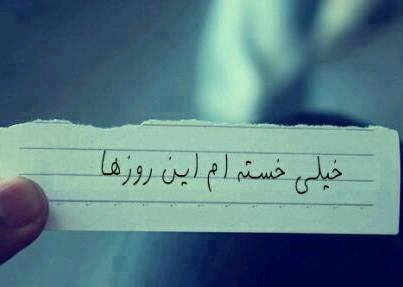 خیلی خسته ام این روزها